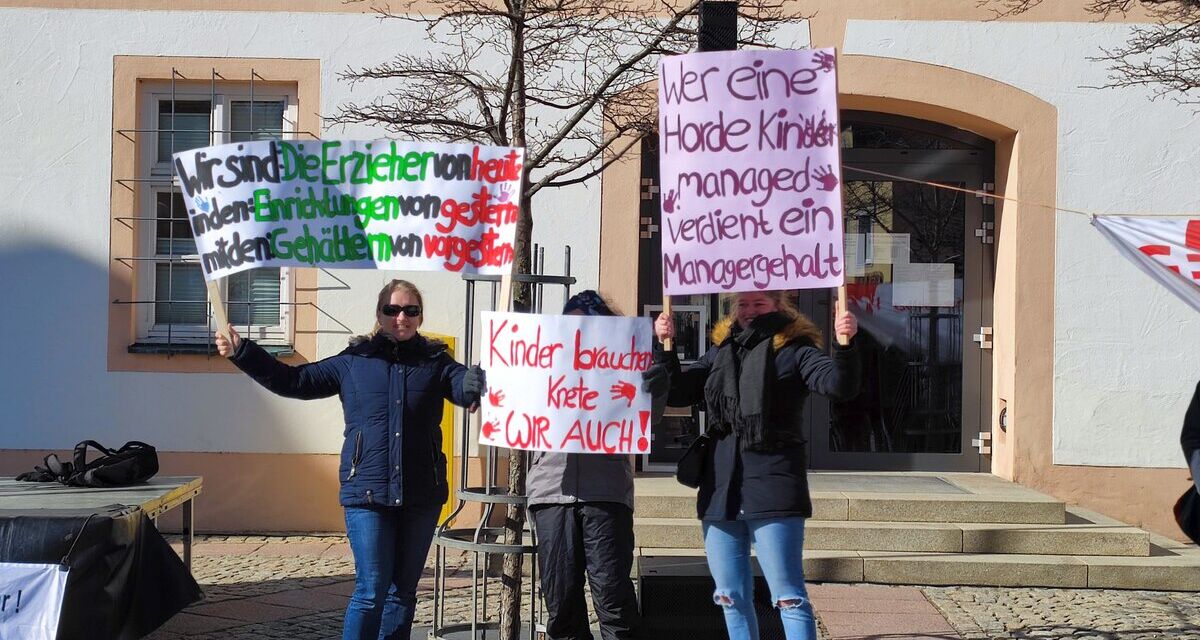 Wir sind: Die Erzieher von heute
in den: Einrichtungen von gestern
mit den: Gehältern von vorgestern
Wer eine
Horde Kinder
managed
verdient ein
Managergehalt
Kinder brauchen
Knete
WIR AUCH!